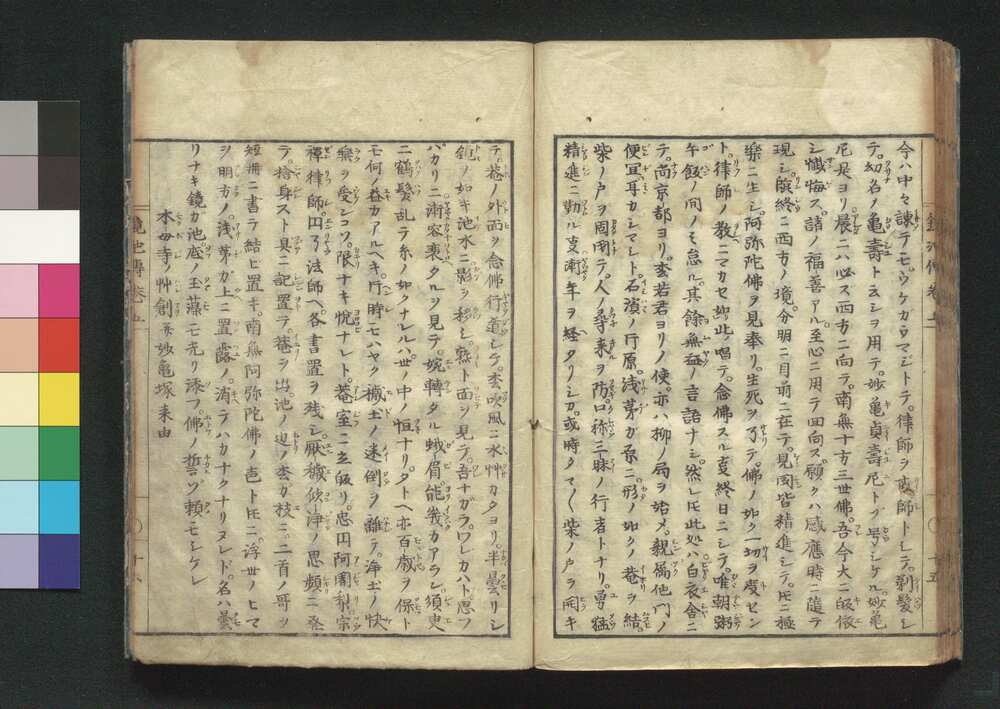 今ハ中々諫テモ。ウケガウマジトテ。律師ヲ戒師トシテ。剃髪シ
テ。幼名ノ亀壽ト云シヲ用テ。妙亀貞壽尼トゾ号シケル。妙亀
尼是ヨリ。晨ニハ必ス西方ニ向テ。南無十方三世佛。吾今大ニ皈依
シ懺悔ス。諸ノ福善アル。至心ニ用テ回向ス。願クハ感應時ニ隨テ
現シ。臨終ニ西方ノ境。分明ニ目前ニ在テ。見聞皆精進シテ。圧ニ極
樂ニ生シ。阿弥陀佛ヲ見奉リ。生死ヲ了テ。佛ノ如ク一切ヲ度セン
ト。律師ノ教ニマカセ如此唱テ。念佛スル叓終日ニシテ。唯朝粥
午飯ノ間ノミ怠ル。其餘無益ノ言語ナシ。然レ圧此処ハ白衣舎ニ
テ。尚京都ヨリ。松若君ヨリノ使。亦ハ柳ノ局ヲ始メ。親属他門ノ
便冝耳カシマシトテ。石濵ノ行原。浅茅ガ原ニ。形ノ如クノ菴ヲ結。
柴ノ戸ヲ閉固テ。人ノ尋来ヲ防。口称三昧ノ行者トナリ。勇猛
精進ニ勤ル叓。漸年ヲ経タリシカ。或時タマ〱柴ノ戸ヲ開キ
テ。菴ノ外面ヲ念佛行道シケル。松吹風ニ水艸カタヨリ。半曇リシ
鏡ノ如キ池水ニ影ヲ移シ。熟ト面ヲ見テ。吾ナガラ。ワレカハト思フ
バカリニ。漸容衰タルヲ見テ。婉轉タル蛾眉。能幾カアラン。須臾
ニ鶴髪乱テ糸ノ如クナレルハ。世ノ中ノ恒ナリ。タトヘ亦百歳ヲ保ト
モ。何ノ益カアルヘキ。片時モハヤク穢土ノ迷倒ヲ離テ。浄土ノ快
樂ヲ受シコソ。限ナキ悦ナレト。菴室ニ立皈リ。忠円阿闍梨。宗
禪律師。円了法師ヘ。各書置ヲ残シ。厭穢欣浄ノ思頻ニ発
テ。捨身スト具ニ記置テ。菴ヲ出池ノ辺ノ松ガ枝ニ。二首ノ哥ヲ
短冊ニ書テ結ヒ置キ。南無阿弥陀佛ノ声ト圧ニ。浮世ノヒマ
ヲ明方ノ。浅茅ガ上ニ置露ノ。消テハカナクナリヌレド。名ハ曇
リナキ鏡カ池。底ノ玉藻モ光リ添フ。佛ノ誓ゾ頼モシケレ
木母寺ノ艸創並妙亀塚来由
鏡池傳巻五